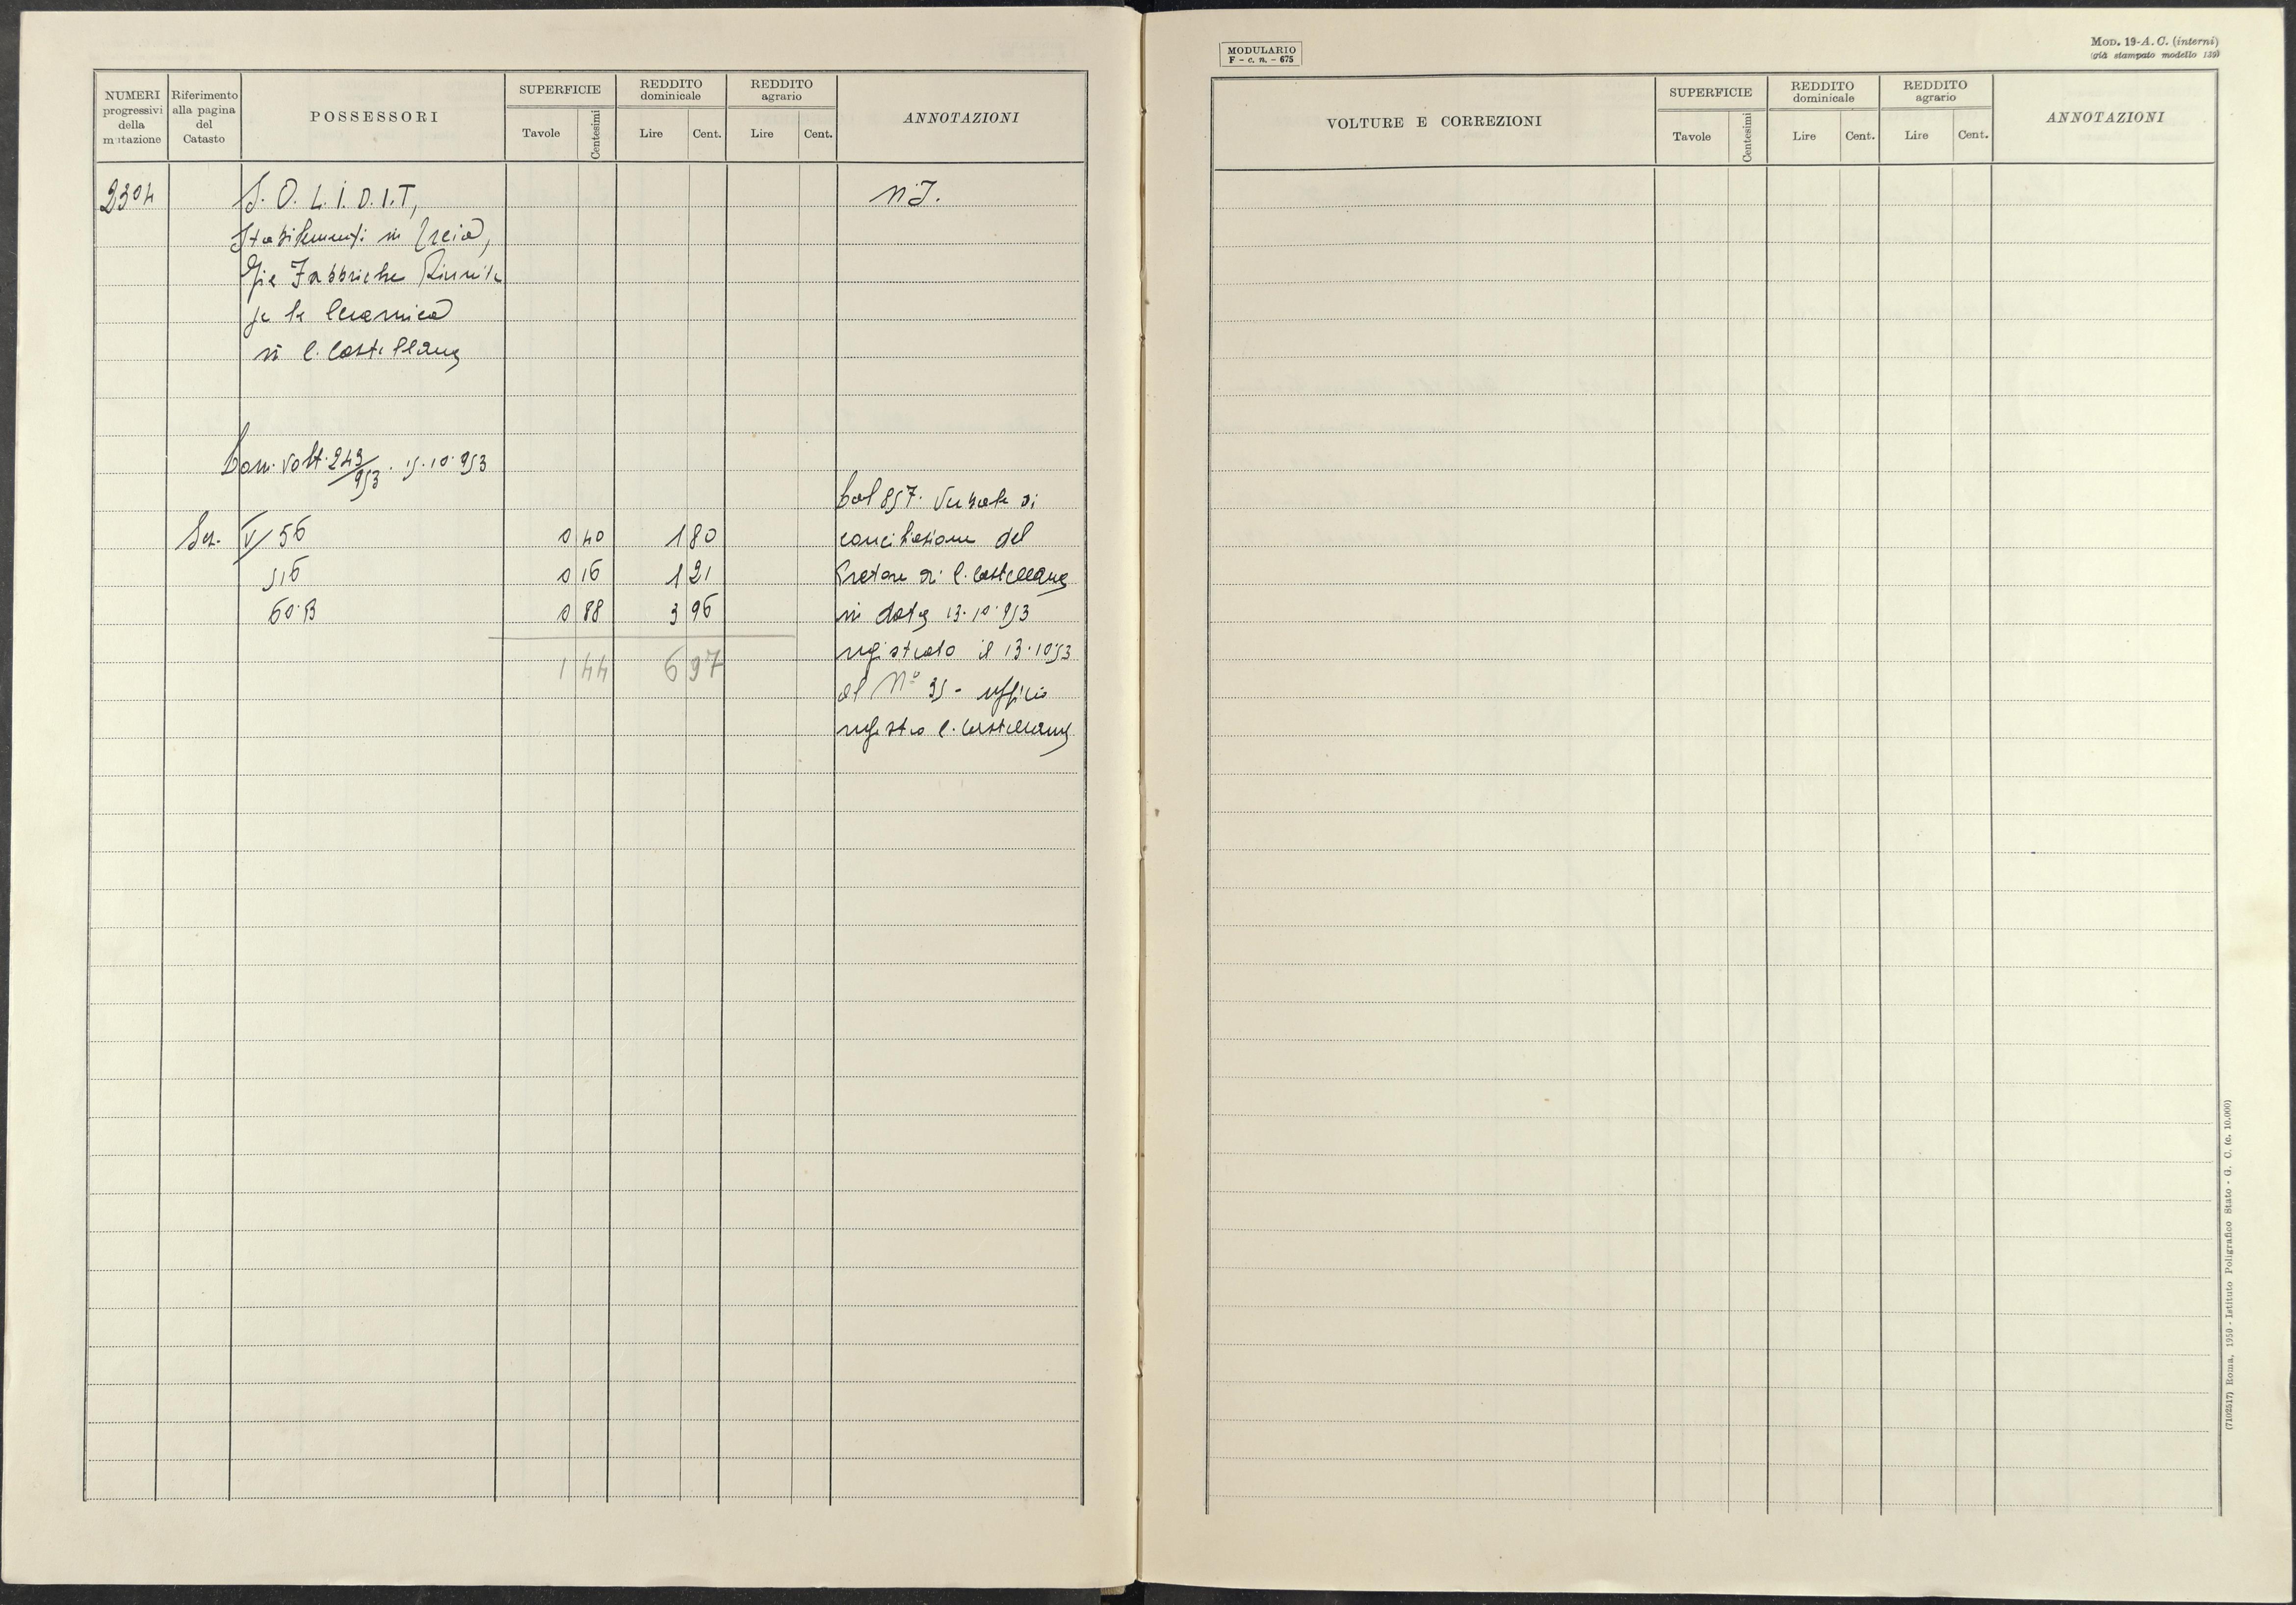 NUMERI progressivi della mutazione
Riferimento alla pagina del Catasto
POSSESSORI
SUPERFICIE
Tavole
Centesimi
REDDITO dominicale
Lire
Cent.
REDDITO agrario
Lire
Cent.
ANNOTAZIONI
2304
S. O. L. I. D. I. T,
N.I.
Stabilimenti in
Già Fabbriche Riunite
per la Ceramica
in C. Castellana
Dom. Volt. 243/953. 15.10.953
Sez. V/56 0 40 1 80
516 0 16 1 21
60.B 0 88 3 96
1 44 6 97
Col 857. Verbale di
conciliazione del
Pretore di C. Castellana
in data 13.10.953
registrato il 13.10 53
al N° 95 - ufficio
registro C. Castellana
MODULARIO
F - c. n. - 675
MOD. 19-A. C. (interni)
(già stampato modello 139)
VOLTURE E CORREZIONI
SUPERFICIE
Tavole
Centesimi
REDDITO dominicale
Lire
Cent.
REDDITO agrario
Lire
Cent.
ANNOTAZIONI
(7102517) Roma, 1950 - Istituto Poligrafico Stato - G. C. (c. 10.000)